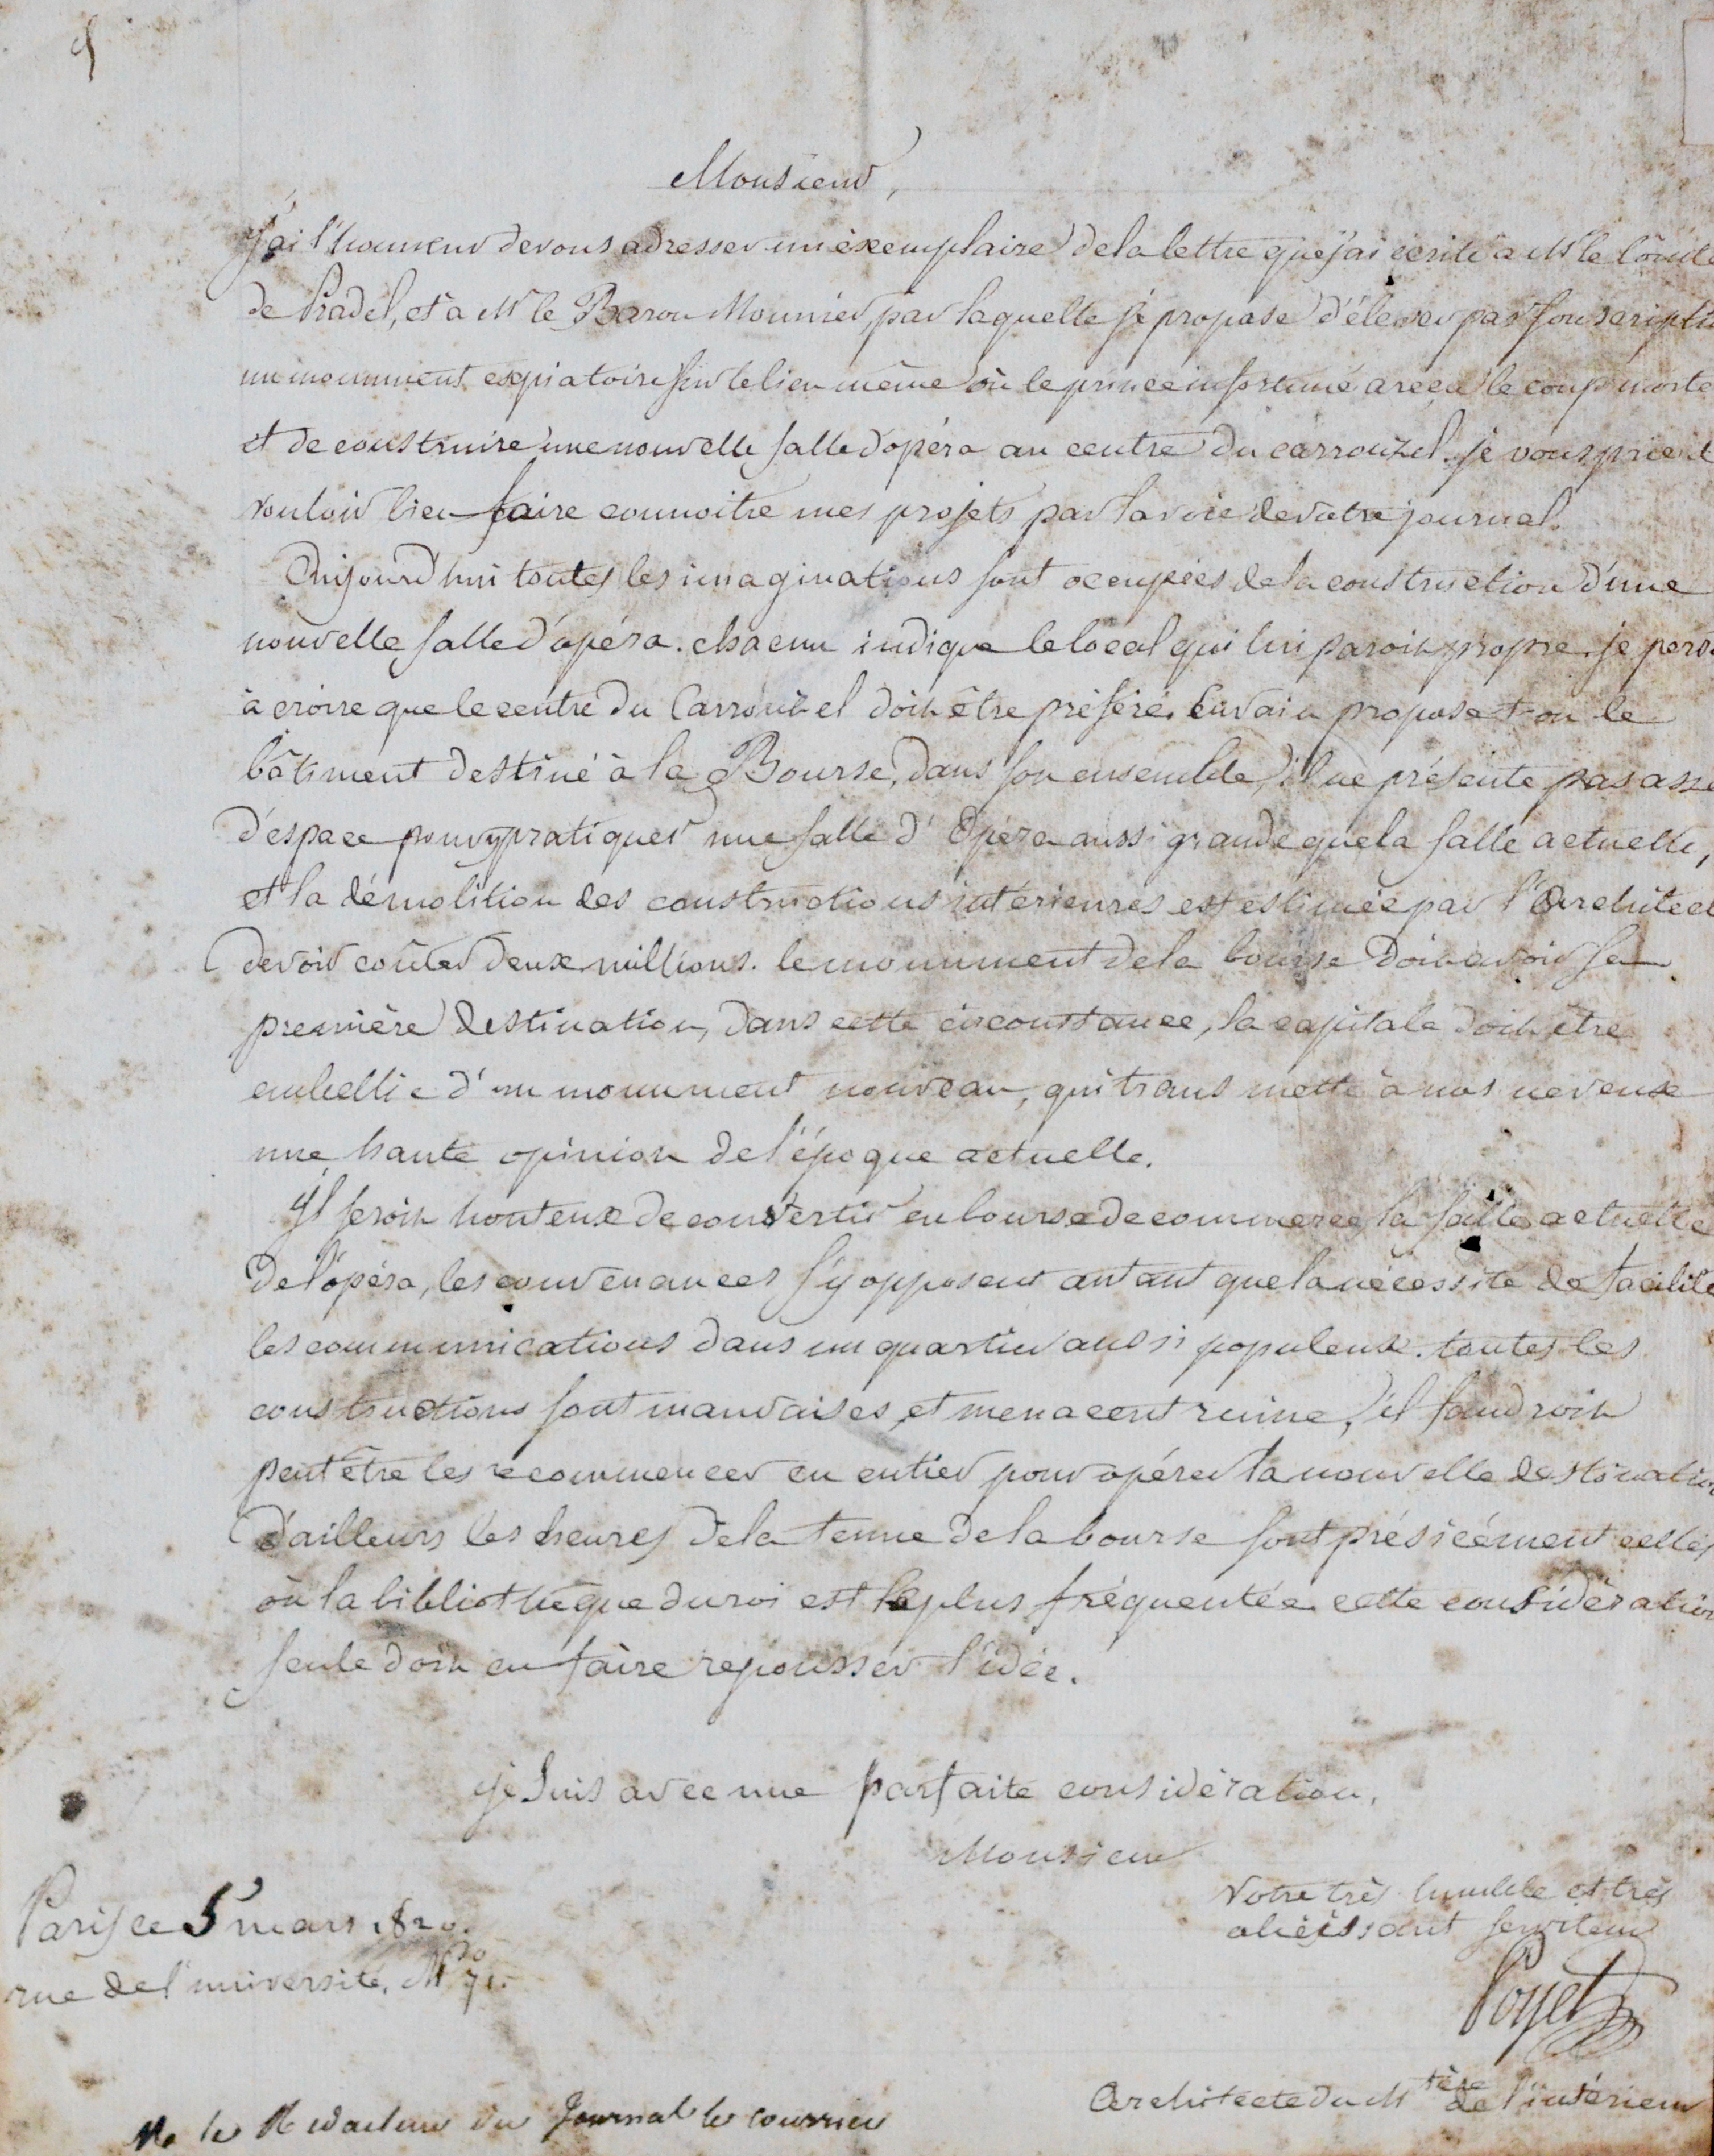 Monsieur,
J'ai l'honneur de vous adresser un éxemplaire de la lettre que j'ai écrite à Mr le Comte
de Pradel, et à Mr le Baron Mounier, par laquelle je propose d'élever par souscriptio
un monument expiatoire sur le lieu même où le prince infortuné a reçu le coup morte
et de construire une nouvelle salle d'opéra au centre du carrouzel. je vous prie d
vouloir bien faire connoitre mes projets par la voie de votre journal.
Aujourd'hui toutes les imaginations sont occupées de la construction d'une
nouvelle salle d'opéra. chacun indique le local qui lui paroit propre. je pers
à croire que le centre du Carrouzel doit être préféré. Envain propose t-on le
bâtiment destiné à la Bourse, dans son ensemble, il ne présente pas asse
d'espace pour y pratiquer une salle d'Opéra aussi grande que la salle actuelle,
et la démolition des constructions intérieures est estimée par l'Architect
devoir coûter deux millions. le monument de la bourse doit avoir sa
première destination, dans cette circonstance, la capitale doit être
embellie d'un monument nouveau, qui transmette à nos neveux
une haute opinion de l'époque actuelle.
Il seroit honteux de convertir en bourse de commerce la salle actuelle
de l'opéra, les convenances s'y opposent autant que la nécessité de facilite
les communications dans un quartier aussi populeux. toutes les
constructions sont mauvaises, et menacent ruine, il faudroit
peut être les recommencer en entier pour opérer la nouvelle destination
d'ailleurs les heures de la tenue de la bourse sont présicément celles
où la bibliothèque du roi est le plus fréquentée cette considération
seule doit en faire repousser l'idée.
je suis avec une parfaite considération,
Monsieur
Votre très humble et très
obéissant serviteur
Paris ce 5 mars 1820.
rue de l'université, No 71.
Poyet
Architecte du Mtère de l'intérieur
Mr le Rédacteur du Journal le courrier